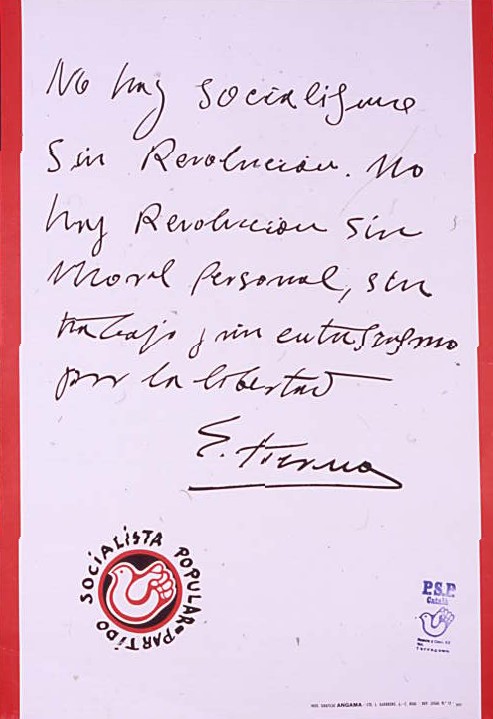 No hay socialismo
sin Revolución. No
hay Revolución sin
Moral Personal, sin
trabajo y sin entusiasmo
por la libertad
E. Tierno
PARTIDO SOCIALISTA POPULAR
P.S.P.
Català
Tarragona
ANGAMA